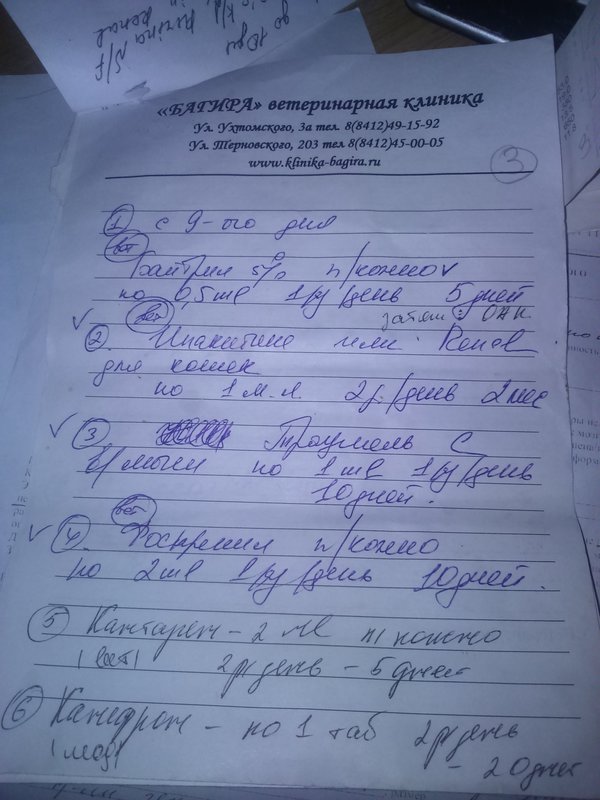 до 10 дн
purina N/F
renal
«БАГИРА» ветеринарная клиника
Ул. Ухтомского, 3а тел. 8(8412)49-15-92
Ул. Терновского, 203 тел 8(8412)45-00-05
www.klinika-bagira.ru
3
① с 9-ого дня
вет
Байтрил 5% п/кожно
по 0,5 мл 1 р/день 5 дней
вет затем: ОАК.
② Ипакитине или Renal
для кошек
по 1 м.л. 2 р./день 2 мес
③ Траумель С
в/мышч по 1 мл 1 р/день
10 дней.
вет
④ п/кожно
по 2 мл 1 р/день 10 дней.
⑤ Кантарен - 2 мл п/кожно
(вет) 2 р день - 5 дней
⑥ - по 1 таб 2 р день
(мед) - 20 дней